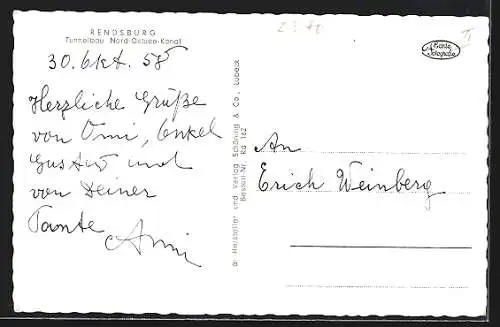 RENDSBURG
Tunnelbau Nord-Ostsee-Kanal
30. Okt. 58
Herzliche Grüße
von Omi, Onkel
Gustav und
von Deiner
Tante
Anni
An
Erich Weinberg
Hersteller und Verlag Schöning & Co., Lübeck
Bestell-Nr. Rd 162
Echte
Fotografie